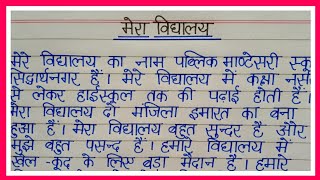 मेरा विद्यालय
मेरे विद्यालय का नाम पब्लिक माण्टेसरी स्कू
सिद्धार्थनगर हैं। मेरे विद्यालय में कक्षा नर्स
से लेकर हाईस्कूल तक की पढ़ाई होती हैं।
मेरा विद्यालय दो मंजिला इमारत का बना
हुआ है। मेरा विद्यालय बहुत सुन्दर है और
मुझे बहुत पसन्द है। हमारे विद्यालय में
खेल-कूद के लिए बड़ा मैदान है। हमारे